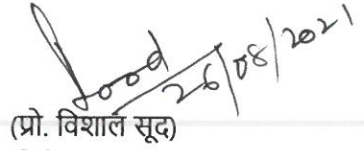 Sood
26/08/2021
(प्रो. विशाल सूद)